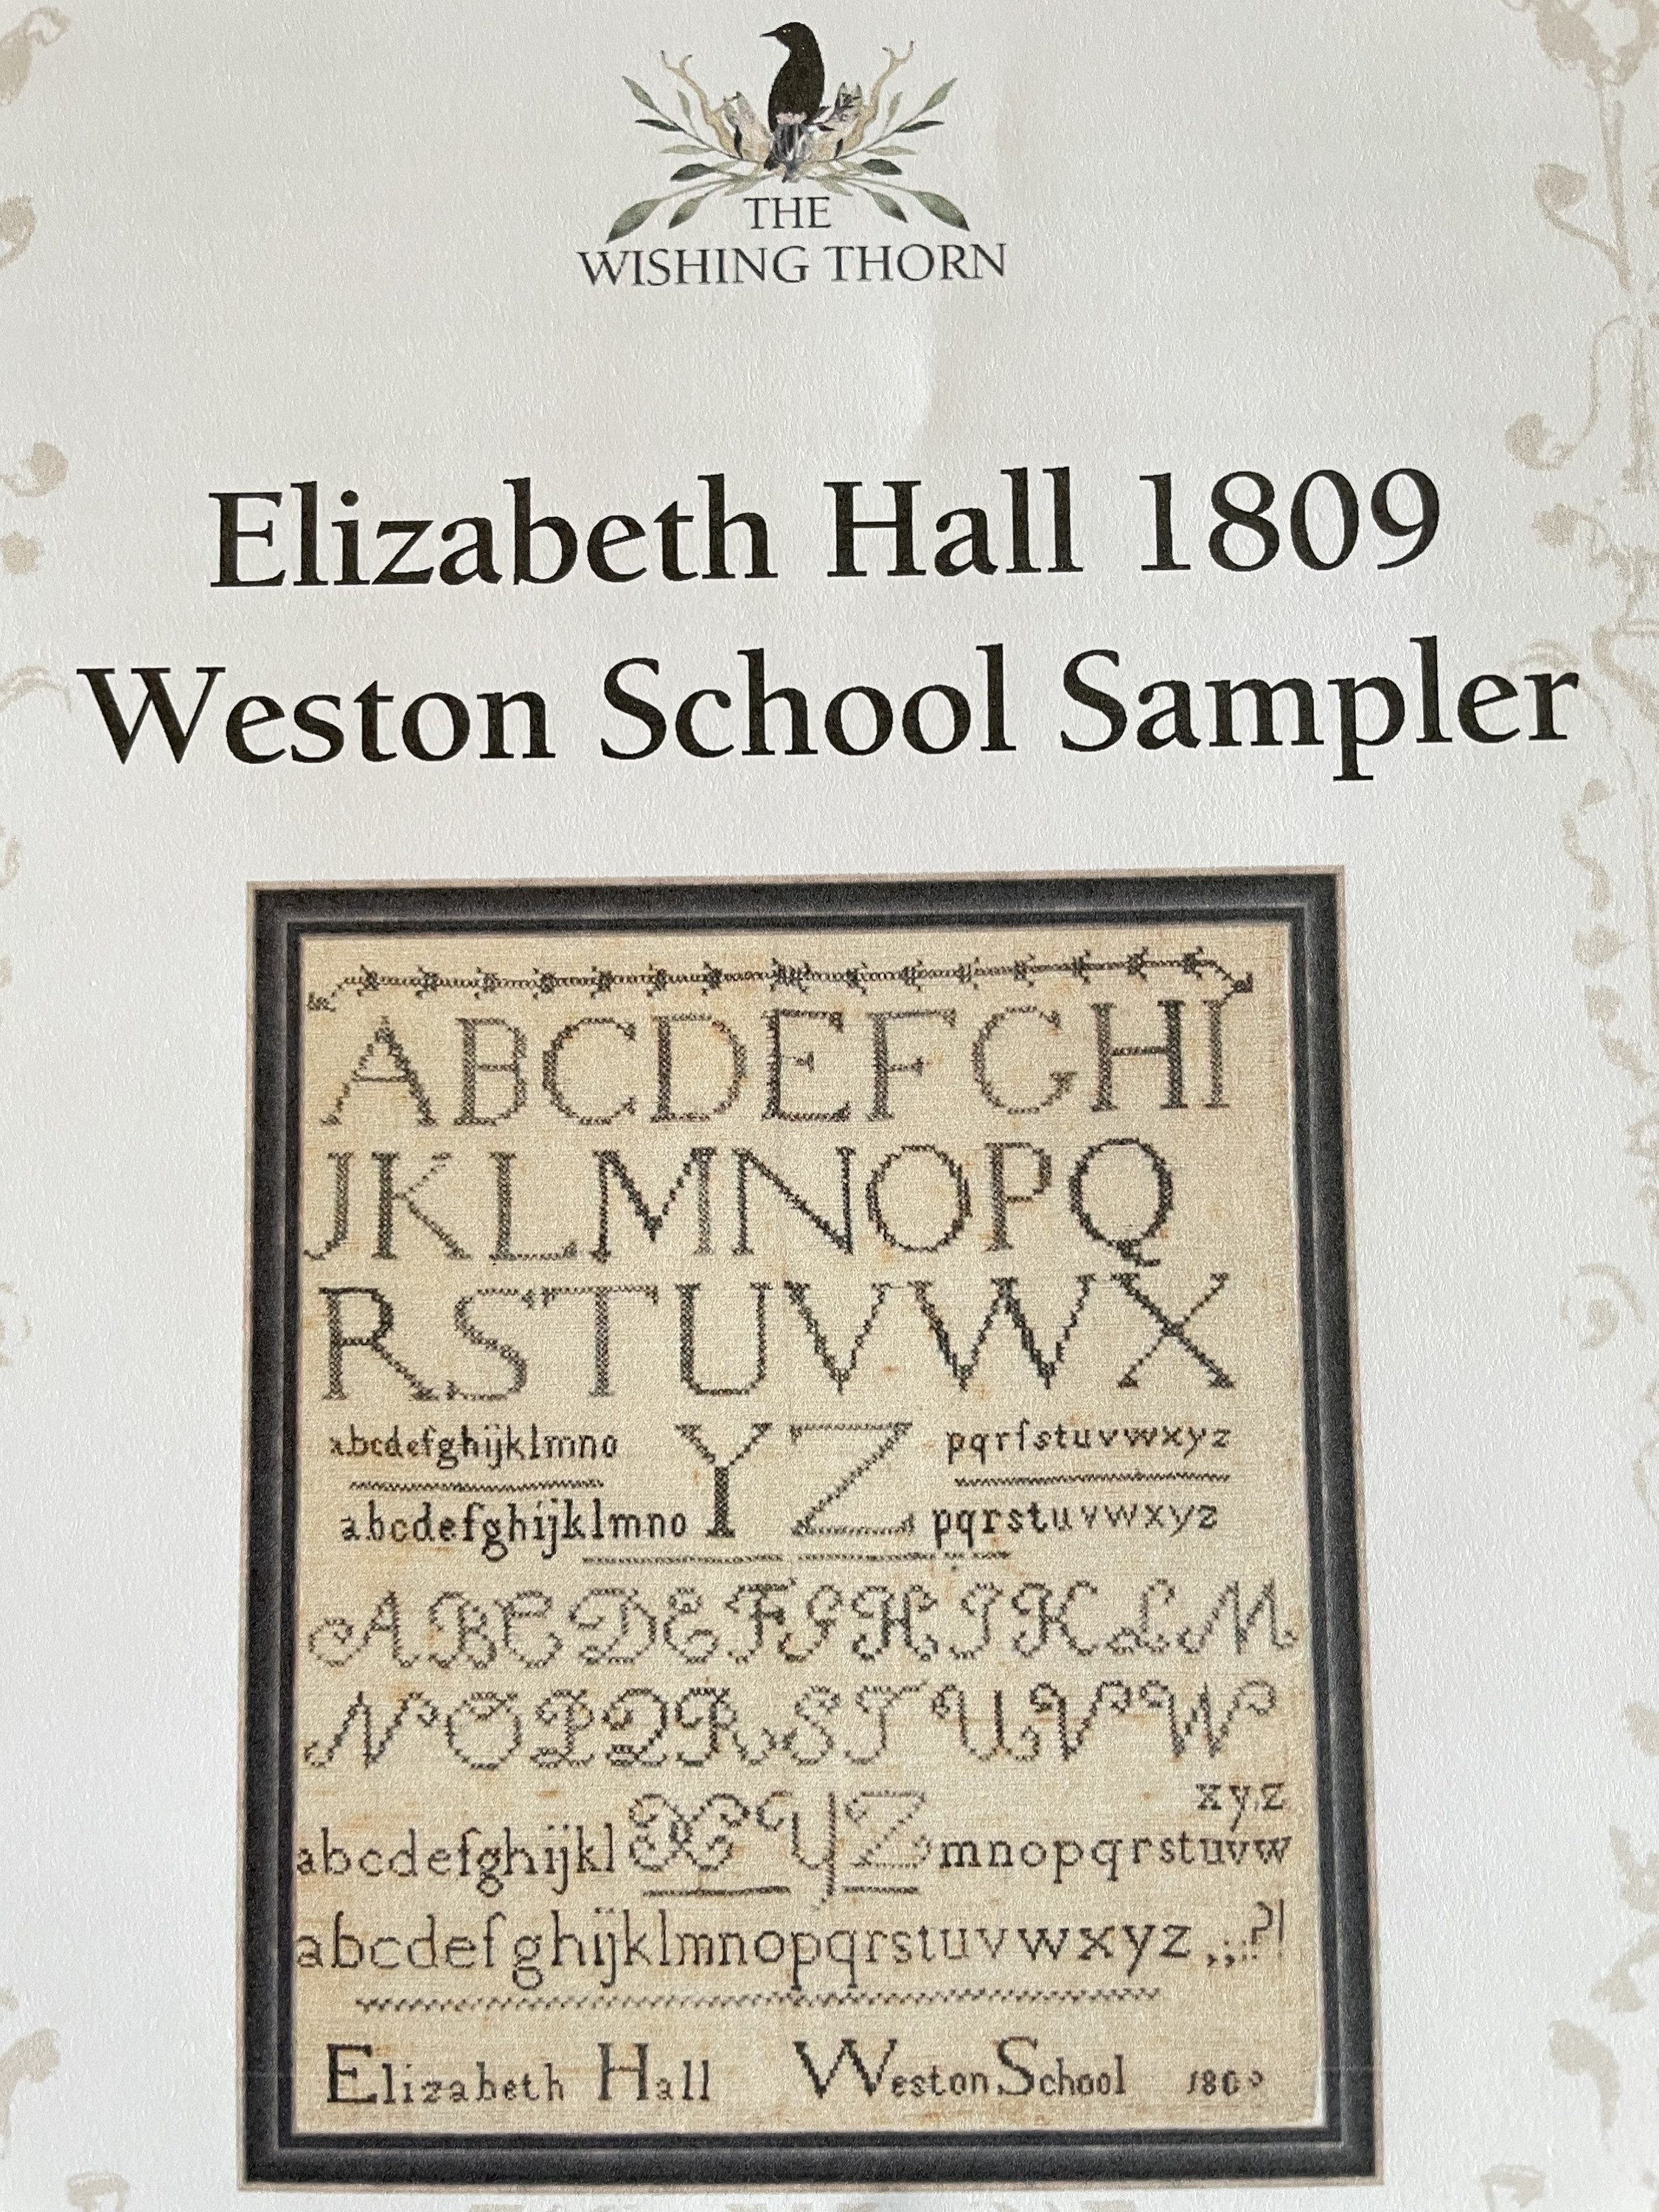 THE
WISHING THORN
Elizabeth Hall 1809
Weston School Sampler
ABCDEFGHI
JKLMNOPQ
RSTUVWX
abcdefghijklmno YZ pqrſstuvwxyz
abcdefghijklmno pqrstuvwxyz
ABCDEFGHIJKLM
NOPQRSTUVW
xyz
abcdefghijkl XYZ mnopqrstuvw
abcdefghijklmnopqrstuvwxyz ,;:?!
Elizabeth Hall Weston School 1809